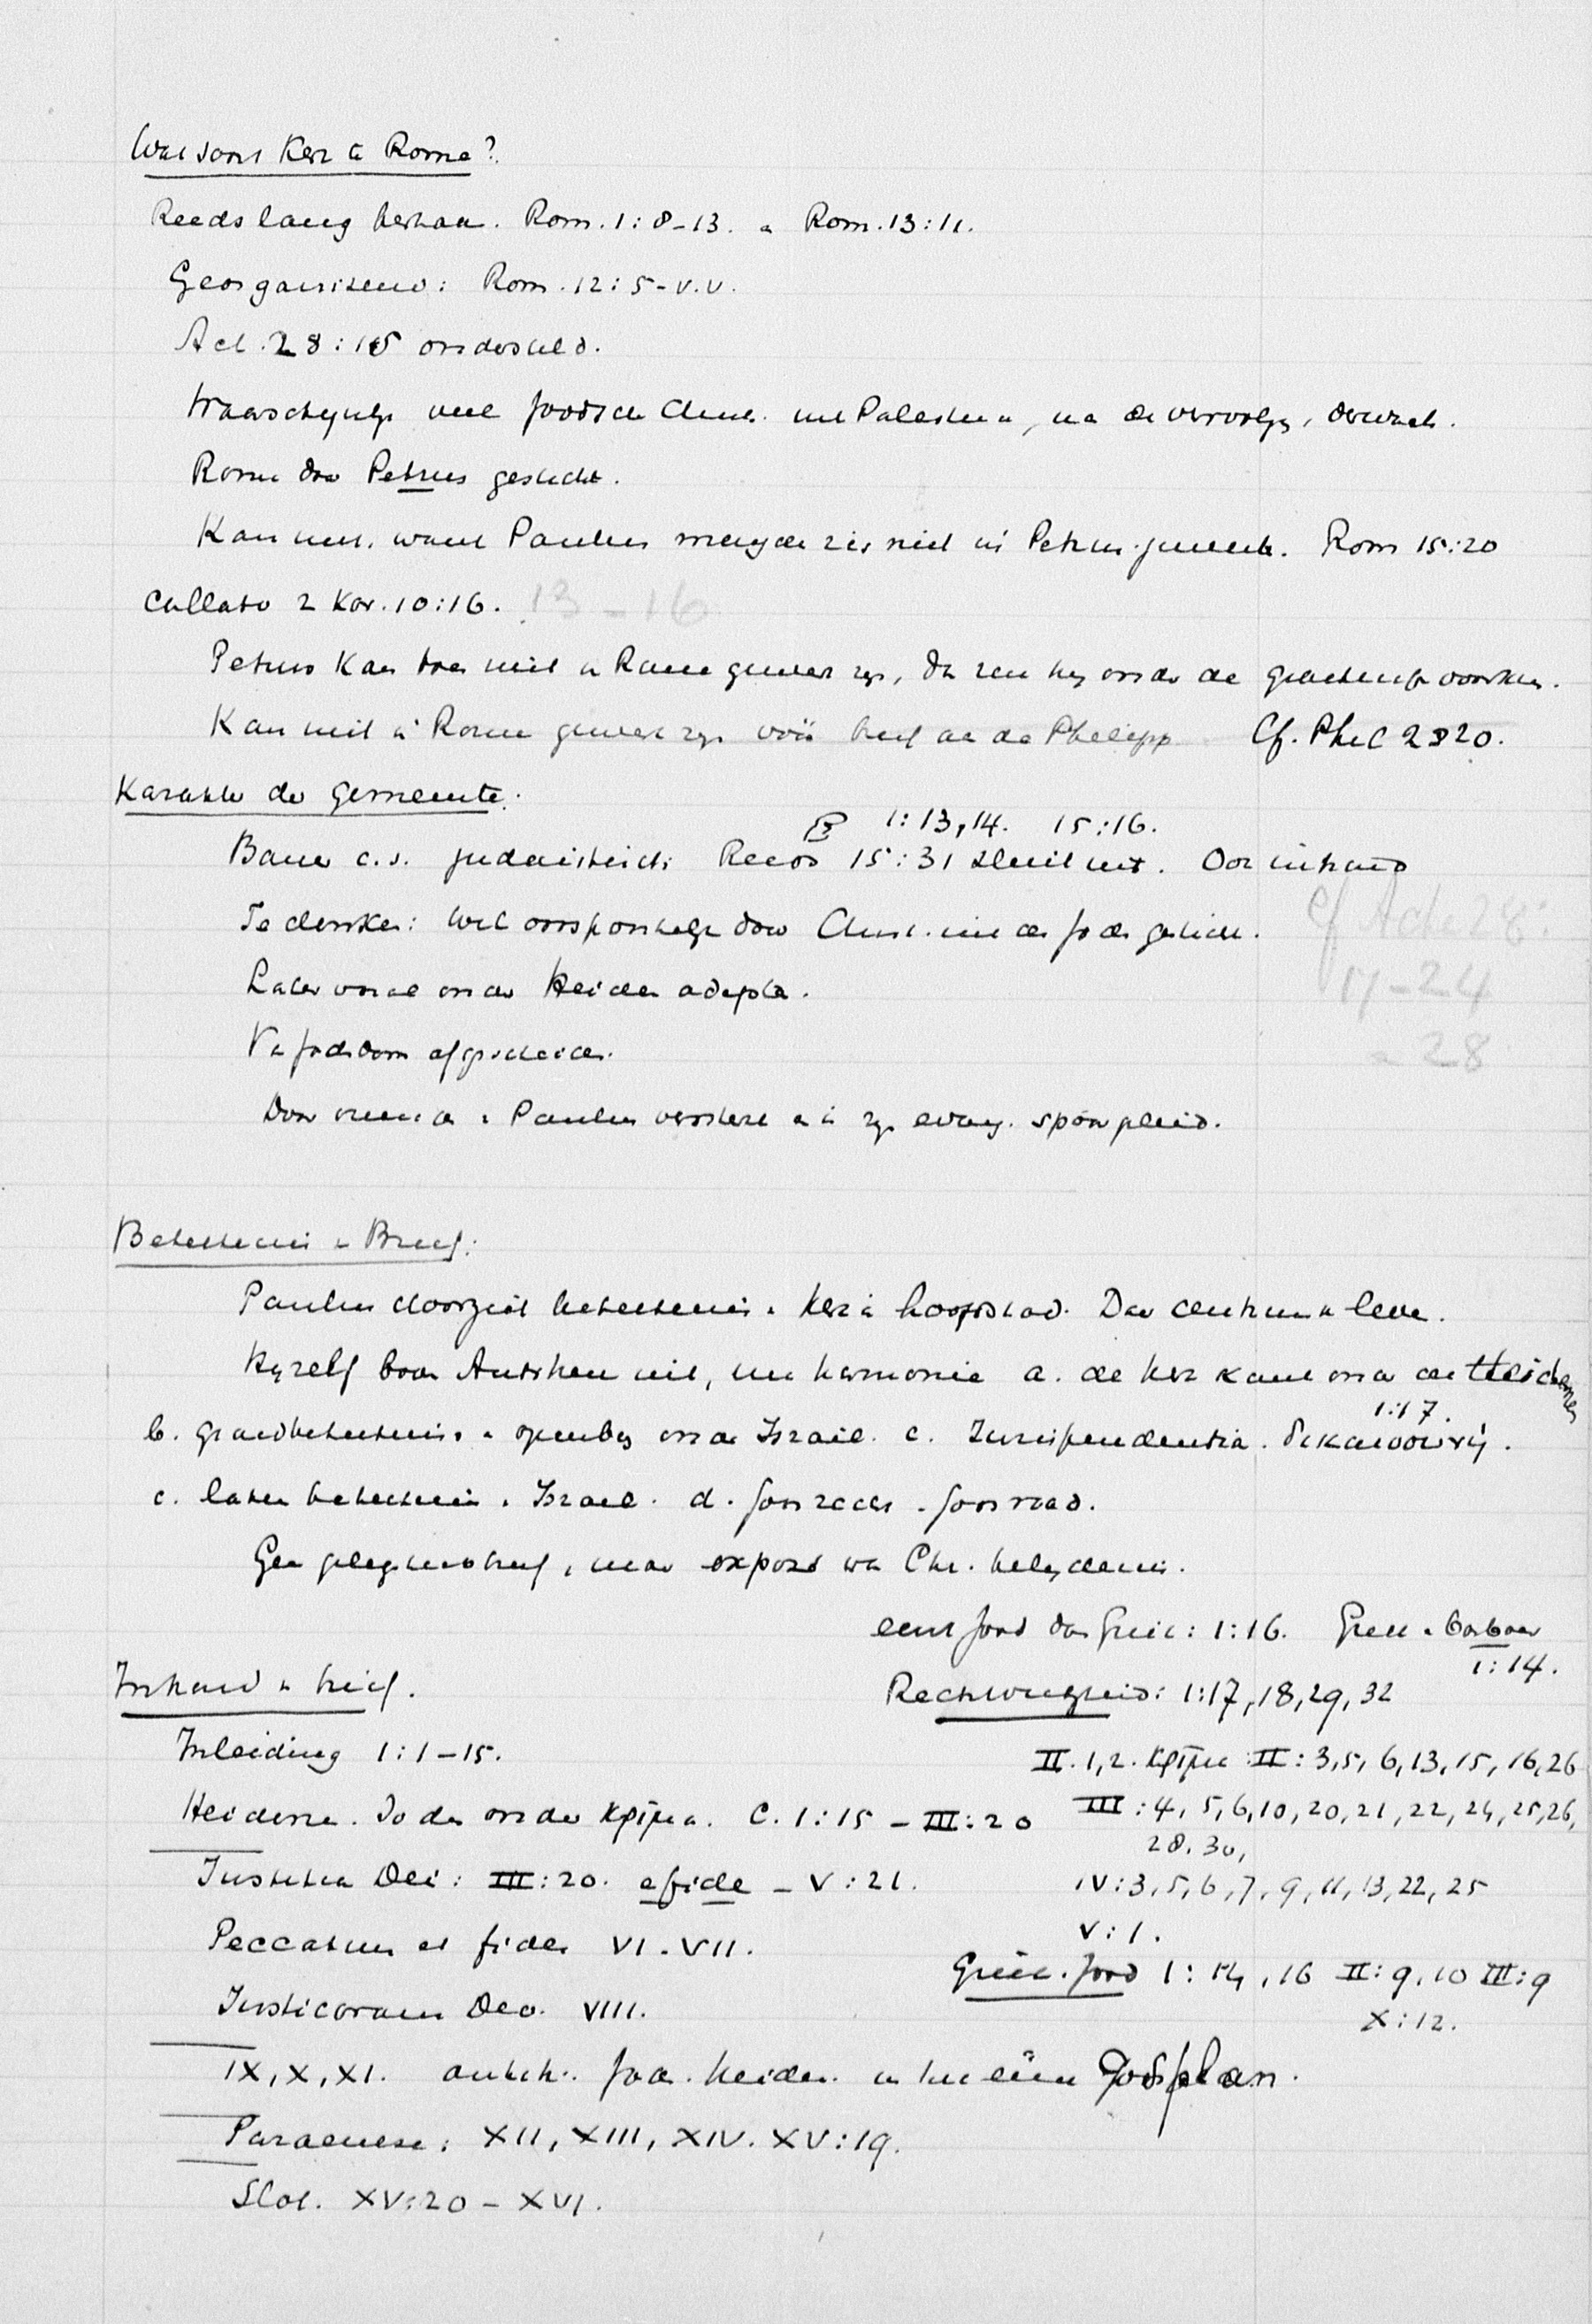 Wat soort Kerk in Rome?
Reeds lang bestaan. Rom. 1:8-13. en Rom. 13:11.
Georganiseerd: Rom. 12:5-v.v.
Act. 28:15 ondersteld.
Waarschijnlijk veel Joodsche Christ. uit Palestina, na de vervolg.
Rome door Petrus gesticht.
Kan niet. want Paulus mengde zich niet in Petrus' gemeente. Rom 15:20
Collato 2 Kor. 10:16. 13-16
Petrus kan toen niet in Rome geweest zijn, dan zou hij onder de voorkomen.
Kan niet in Rome geweest zijn vóór brief aan de Philipp Cf. Phil 2:20.
Karakter der gemeente:
1:13,14. 15:16.
Baur c.s. judaistisch: Reeds 15:31 sluit uit. Ook inhoud
Te denken: wel oorspronkelijk door Christ. uit de Joden gesticht.
Cf Acta 28:
17-24
28
Later vooral onder Heiden adepten.
Van Jodendom afgescheiden.
Door Paulus versterkt en in zijn evang. opgeleid.
Beteekenis v. Brief:
Paulus doorziet beteekenis v. Kerk in hoofdstad. Daar centrum v. leven.
Hijzelf van Antiochen uit, in harmonie a. de kerk kant onder de Heidenen
1:17.
b. grondbeteekenis v. openbg onder Israel. c. Iurisprudentia. δικαιοσύνη.
c. latere beteekenis v. Israel. d. Gods recht. Gods raad.
Geen gelegenheidsbrief, maar exposé van Chr. belijdenis.
eerst Jood dan Griek: 1:16. Griek en barbaar
1:14.
Inhoud v. brief.
Rechtvaardigheid: 1:17, 18, 29, 32
Inleiding 1:1-15.
II. 1, 2. κρῖμα II: 3, 5, 6, 13, 15, 16, 26
Heidenen. Joden onder κρῖμα. C. 1:15 - III:20
III: 4, 5, 6, 10, 20, 21, 22, 24, 25, 26,
28. 30,
Iustitia Dei: III:20. e fide - V:21.
IV: 3, 5, 6, 7, 9, 11, 13, 22, 25
V: 1.
Peccatum et fides VI. VII.
Griek. Jood 1:14, 16 II: 9, 10 III: 9
X: 12.
Iusti coram Deo. VIII.
IX, X, XI. Joden. heiden. in het ééne Godsplan.
Paraenese: XII, XIII, XIV. XV:19.
Slot. XV:20 - XVI.